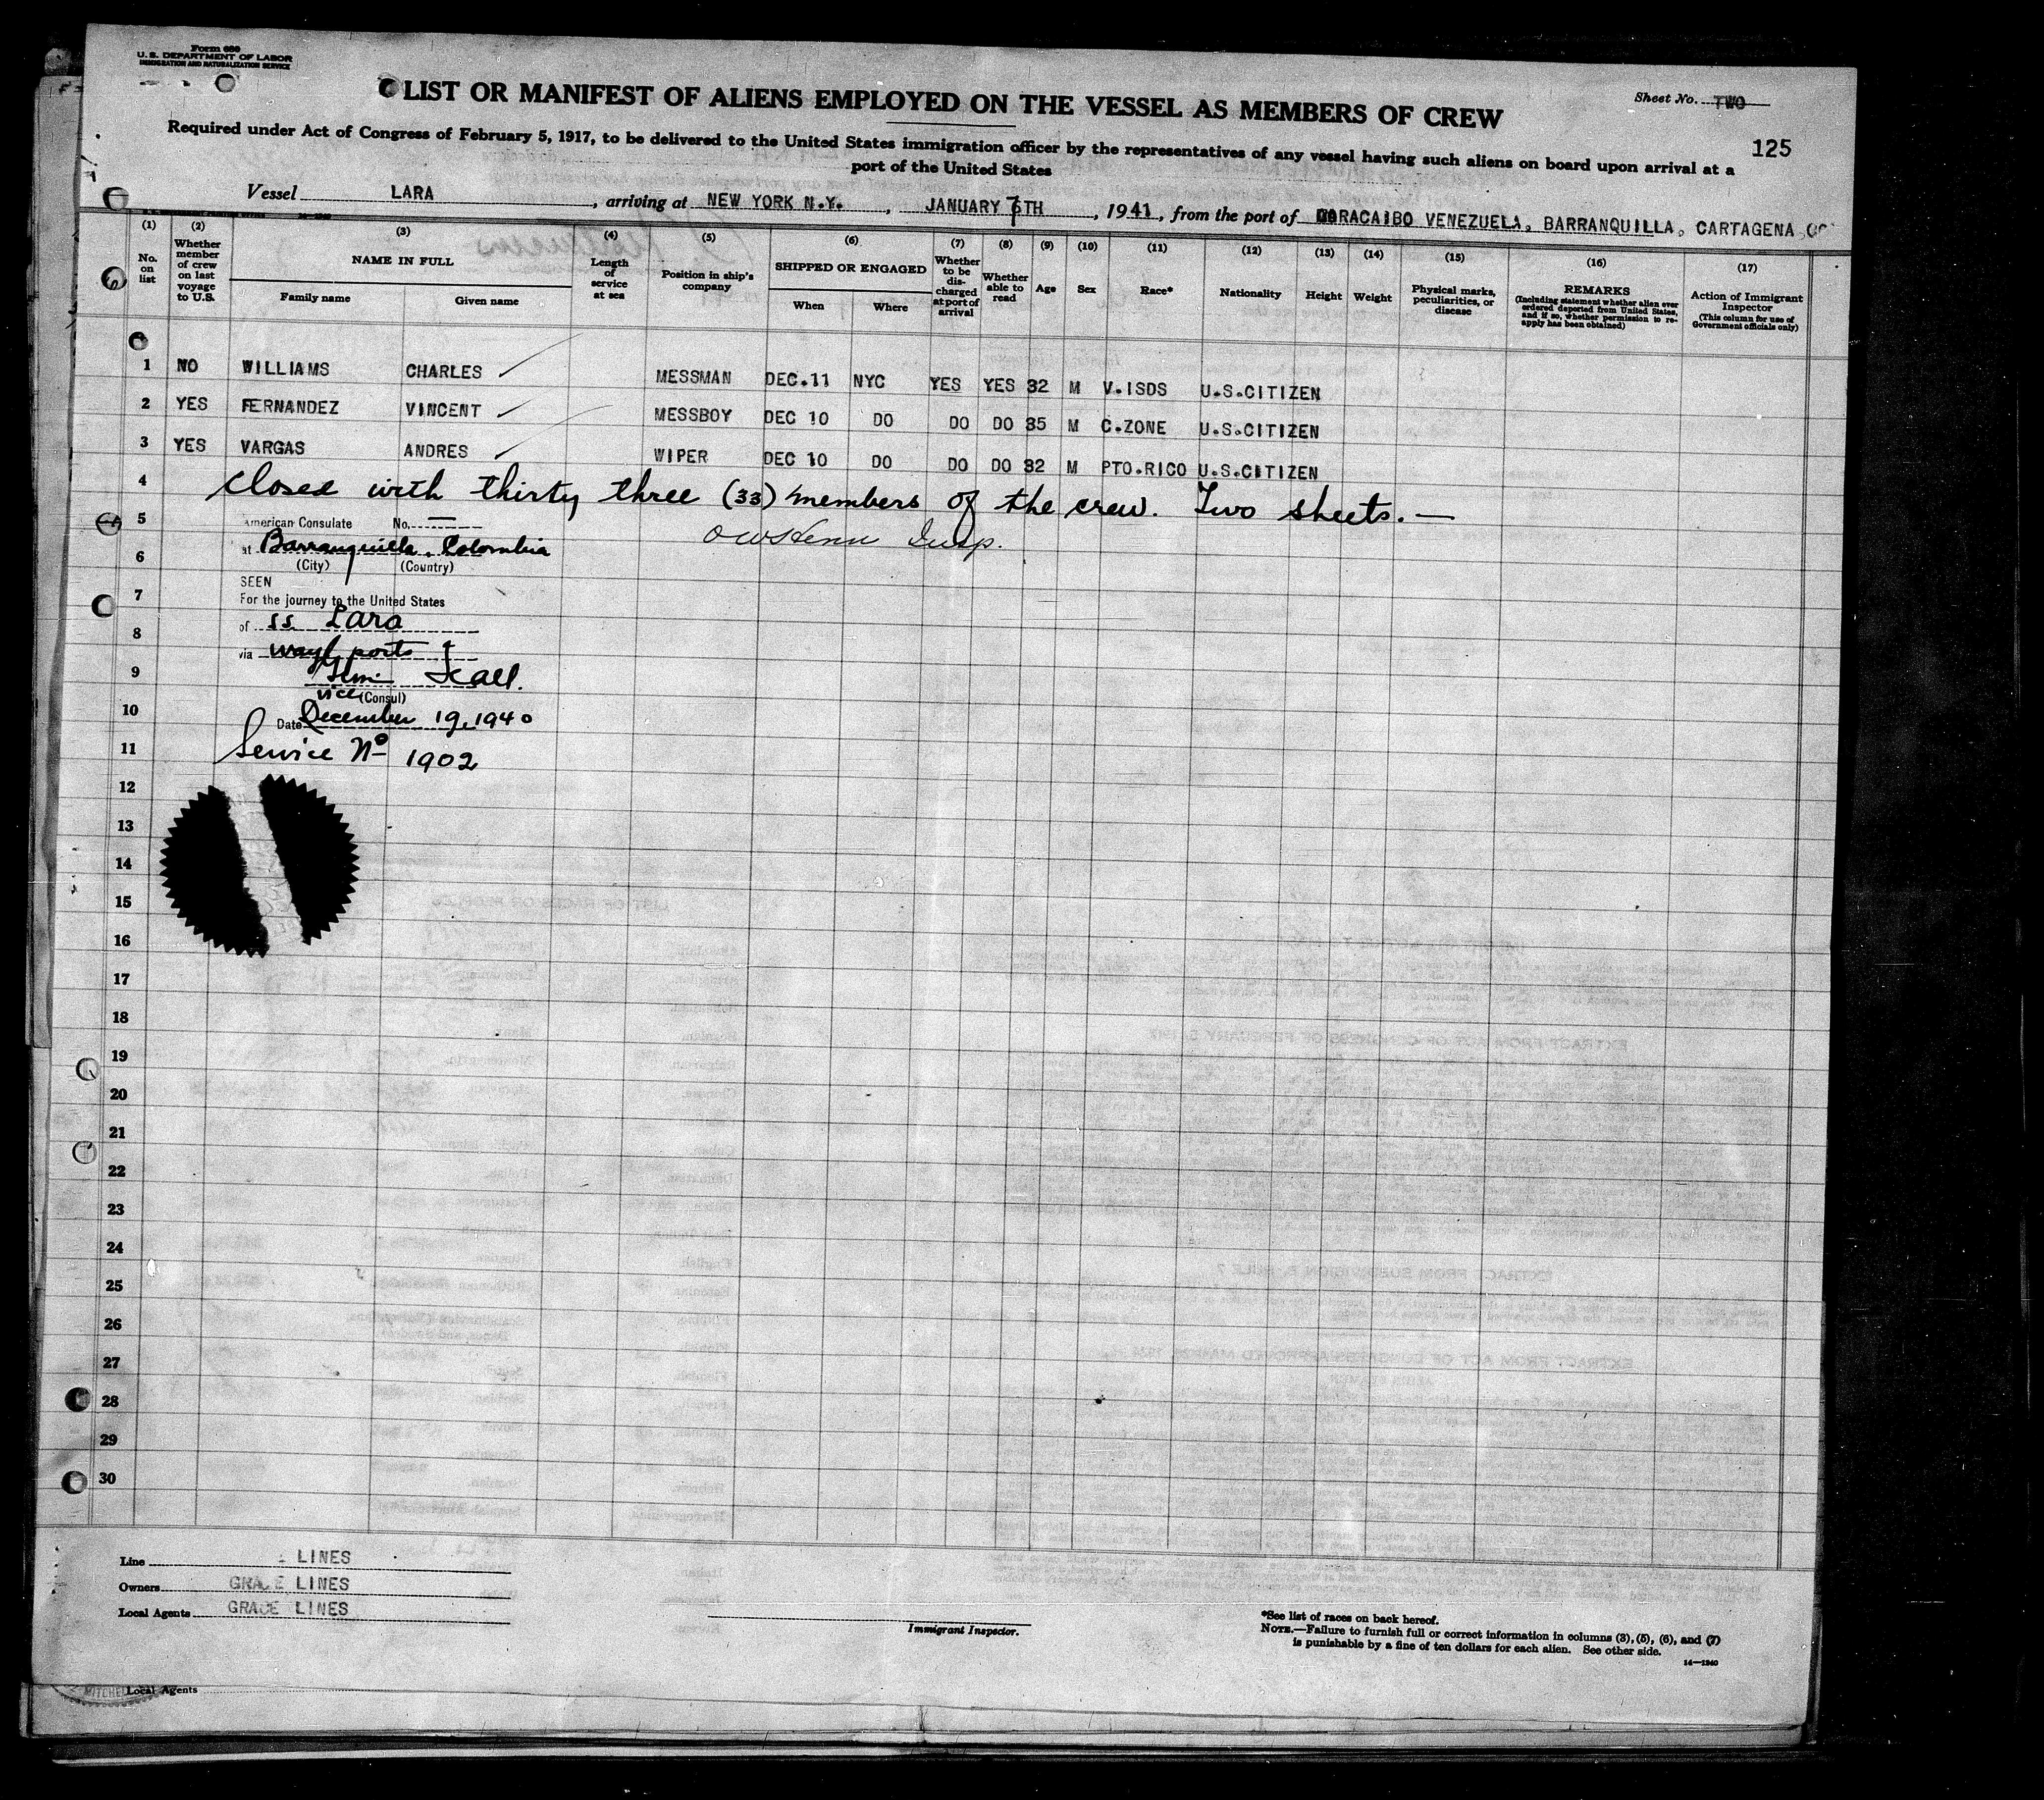 Form 680
U.S. DEPARTMENT OF LABOR
IMMIGRATION AND NATURALIZATION SERVICE
LIST OR MANIFEST OF ALIENS EMPLOYED ON THE VESSEL AS MEMBERS OF CREW
Sheet No. TWO
125
Required under Act of Congress of February 5, 1917, to be delivered to the United States immigration officer by the representatives of any vessel having such aliens on board upon arrival at a
port of the United States
Vessel LARA, arriving at NEW YORK N.Y., JANUARY TH, 1941, from the port of MARACAIBO VENEZUELA, BARRANQUILLA, CARTAGENA
(1) No. on list
(2) Whether member of crew on last voyage to U.S.
(3) NAME IN FULL Family name Given name
(4) Length of service at sea
(5) Position in ship's company
(6) SHIPPED OR ENGAGED When Where
(7) Whether to be discharged at port of arrival
(8) Whether able to read
(9) Age
(10) Sex
(11) Race*
(12) Nationality
(13) Height
(14) Weight
(15) Physical marks, peculiarities, or disease
(16) REMARKS (Including statement whether alien ever ordered deported from United States, and if so, whether permission to reapply has been obtained)
(17) Action of Immigrant Inspector (This column for use of Government officials only)
1 NO WILLIAMS CHARLES MESSMAN DEC.11 NYC YES YES 32 M V.ISDS U.S.CITIZEN
2 YES FERNANDEZ VINCENT MESSBOY DEC 10 DO DO DO 35 M C.ZONE U.S.CITIZEN
3 YES VARGAS ANDRES WIPER DEC 10 DO DO DO 32 M PTO.RICO U.S.CITIZEN
4 Closed with thirty three (33) members of the crew. Two sheets.—
5 American Consulate No. —
Insp.
at Barranquilla, Colombia
6 (City) (Country)
SEEN
7 For the journey to the United States
of ss. Lara
8
via way ports
9
vice (Consul)
10 Date December 19, 1940
11 Service No 1902
12
13
14
15
16
17
18
19
20
21
22
23
24
25
26
27
28
29
30
Line LINES
Owners GRACE LINES
Local Agents GRACE LINES
Immigrant Inspector.
*See list of races on back hereof.
NOTE.—Failure to furnish full or correct information in columns (3), (5), (6), and (7)
is punishable by a fine of ten dollars for each alien. See other side.
14—1240
Local Agents